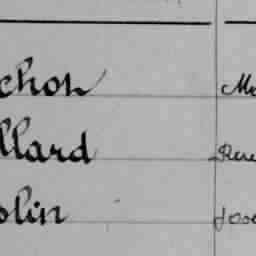 chon Ma
llard Rene
olin Jose